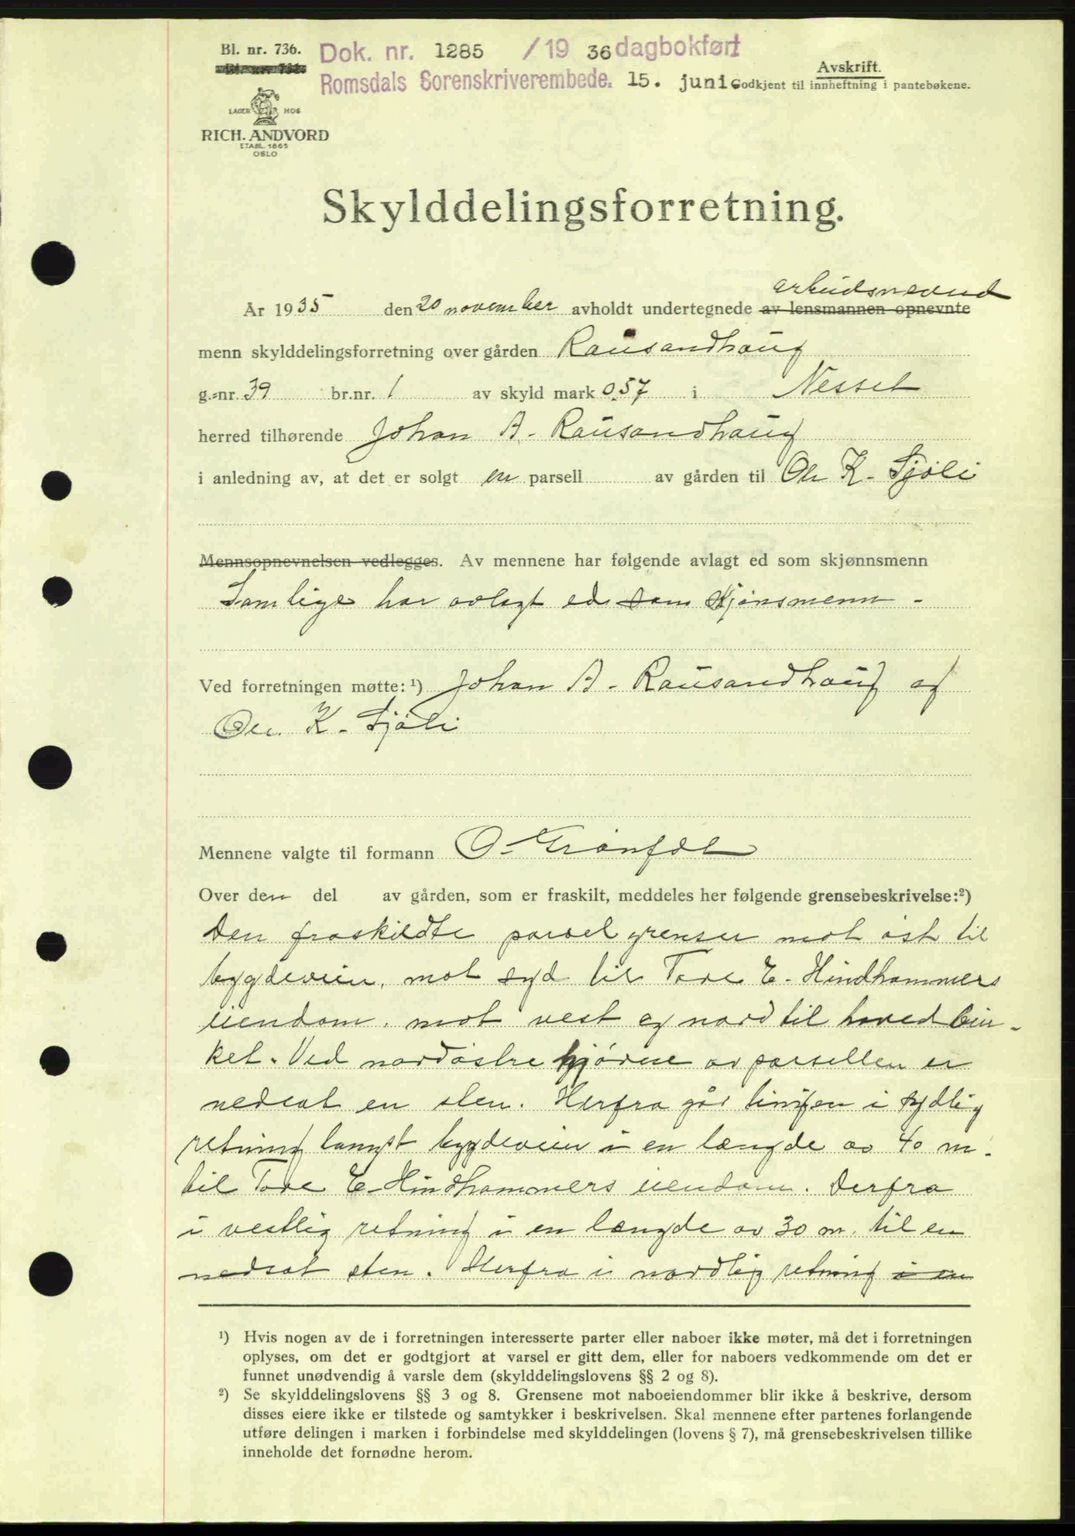 Bl. nr. 736.
Dok. nr. 1285 /19 36 dagbokført
Romsdals Sorenskriverembede. 15. juni.
Avskrift.
Godkjent til innheftning i pantebøkene.
LAGER HOS
RICH. ANDVORD
ETABL. 1865
OSLO
Skylddelingsforretning.
arbeidsnevnd
År 1935 den 20 november avholdt undertegnede av lensmannen opnevnte
menn skylddelingsforretning over gården Rausandhaug
g.-nr. 39 br.nr. 1 av skyld mark 0.57 i Nesset
herred tilhørende Johan A. Rausandhaug
i anledning av, at det er solgt en parsell av gården til Ole K. Sjøli
Mennsopnevnelsen vedlegges. Av mennene har følgende avlagt ed som skjønnsmenn
Samlige har avlagt ed som skjønsmenn -
Ved forretningen møtte: ¹) Johan A. Rausandhaug og
Ole K. Sjøli
Mennene valgte til formann O. Grønfdl
Over den del av gården, som er fraskilt, meddeles her følgende grensebeskrivelse: ²)
Den fraskildte parsel grenser mot øst til
bygdeveien, mot syd til Tore E. Hindhammers
eiendom, mot vest og nord til hovedbru-
ket. Ved nordøstre hjørne av parsellen er
nedsat en sten. Herfra går linjen i sydlig
retning langst bygdeveien i en længde av 40 m.
til Tore E. Hindhammers eiendom. Derfra
i vestlig retning i en længde av 30 m. til en
nedsat sten. Herfra i nordlig retning i en
¹) Hvis nogen av de i forretningen interesserte parter eller naboer ikke møter, må det i forretningen
oplyses, om det er godtgjort at varsel er gitt dem, eller for naboers vedkommende om det er
funnet unødvendig å varsle dem (skylddelingslovens §§ 2 og 8).
²) Se skylddelingslovens §§ 3 og 8. Grensene mot naboeiendommer blir ikke å beskrive, dersom
disses eiere ikke er tilstede og samtykker i beskrivelsen. Skal mennene efter partenes forlangende
utføre delingen i marken i forbindelse med skylddelingen (lovens § 7), må grensebeskrivelsen tillike
inneholde det fornødne herom.